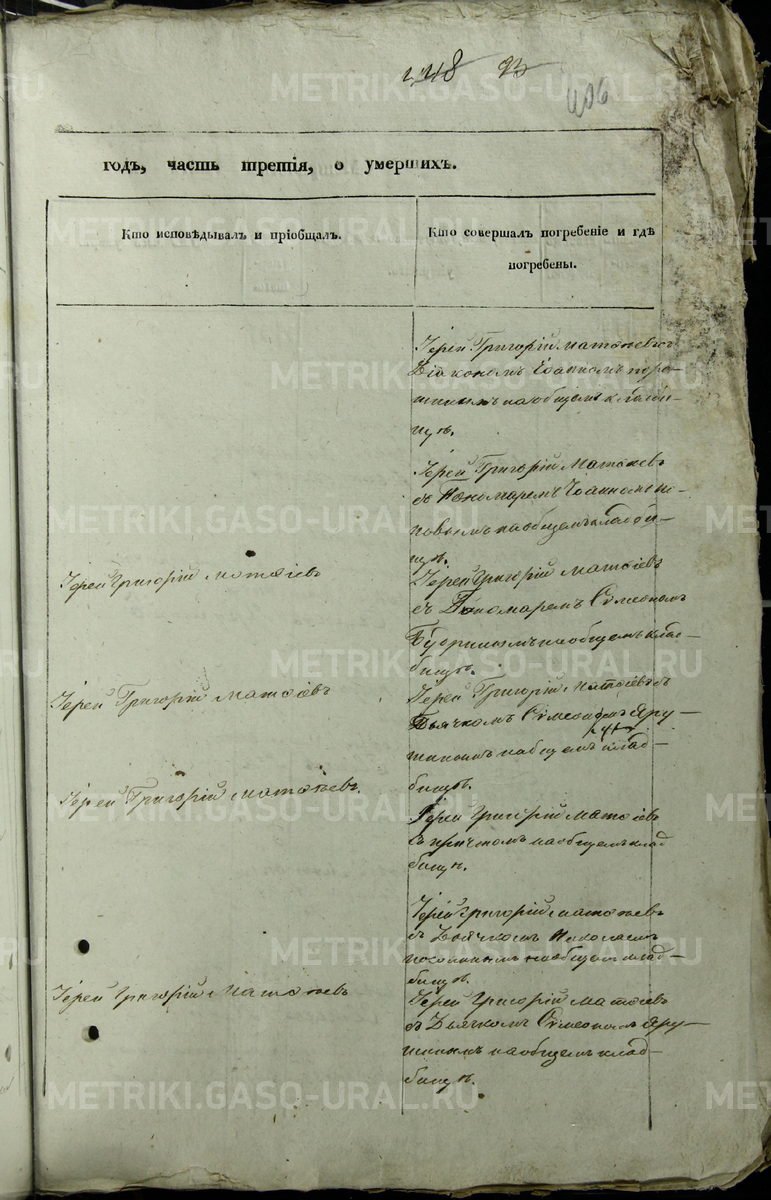 406
годъ, часть третія, о умершихъ.
Кто исповѣдывалъ и пріобщалъ.
Кто совершалъ погребеніе и гдѣ
погребены.
Іерей Григорій Матѳіевъ съ
Діакономъ Іоанномъ
на общемъ кладби-
щѣ.
Іерей Григорій Матѳіевъ
съ Пономаремъ Іоанномъ По-
повымъ на общемъ кладби-
щѣ.
Іерей Григорій Матѳіевъ
Іерей Григорій Матѳіевъ
съ Пономаремъ Симеономъ
на общемъ клад-
бищѣ.
Іерей Григорій Матѳіевъ
Іерей Григорій Матѳіевъ съ
Дьячкомъ Симеономъ Яру-
шинымъ на общемъ клад-
бищѣ.
Іерей Григорій Матѳіевъ
Іерей Григорій Матѳіевъ
съ причтомъ на общемъ клад
бищѣ.
Іерей Григорій Матѳіевъ
съ Дьячкомъ Николаемъ
на общемъ клад-
бищѣ.
Іерей Григорій Матѳіевъ
Іерей Григорій Матѳіевъ
съ Дьячкомъ Симеономъ Яру-
шинымъ на общемъ клад-
бищѣ.
METRIKI.GASO-URAL.RU